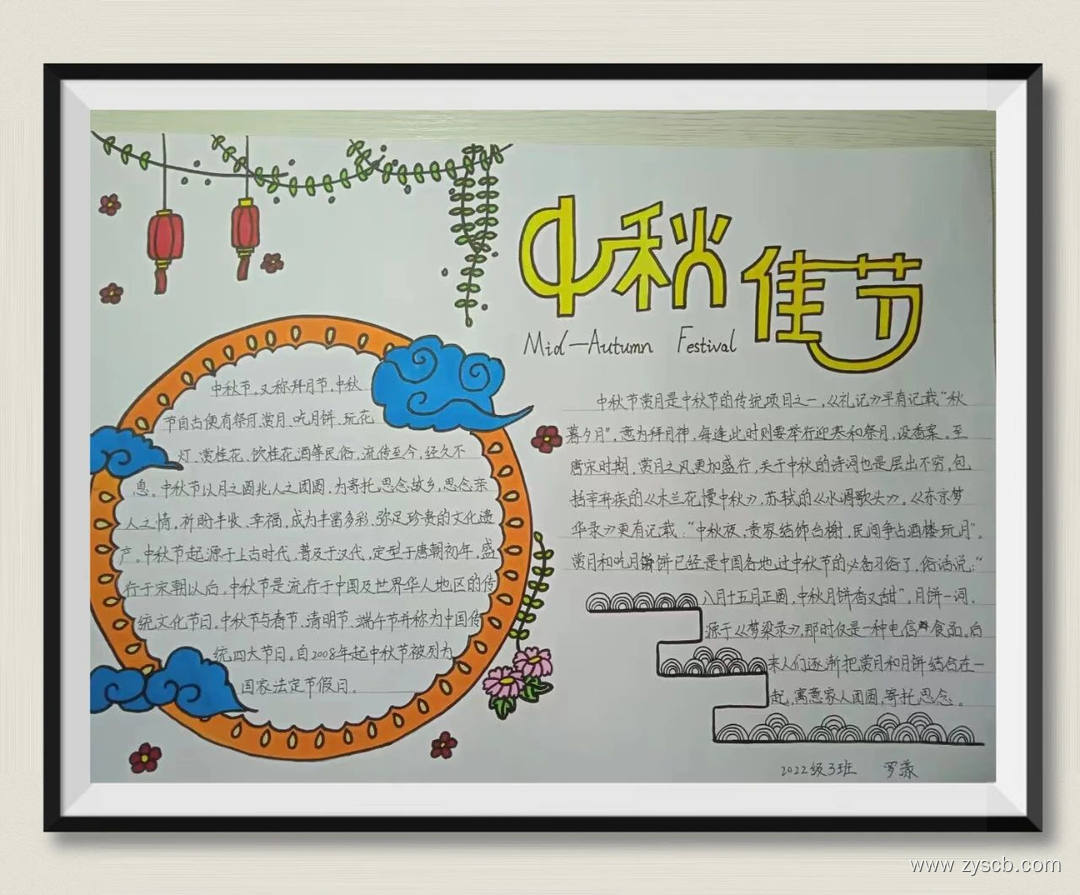 中秋佳节
Mid-Autumn Festival
中秋节,又称拜月节,中秋
节自古便有祭月、赏月、吃月饼、玩花
灯、赏桂花、饮桂花酒等民俗,流传至今,经久不
息。中秋节以月之圆兆人之团圆,为寄托思念故乡,思念亲
人之情,祈盼丰收、幸福,成为丰富多彩、弥足珍贵的文化遗
产。中秋节起源于上古时代,普及于汉代,定型于唐朝初年,盛
行于宋朝以后。中秋节是流行于中国及世界华人地区的传
统文化节日,中秋节与春节、清明节、端午节并称为中国传
统四大节日。自2008年起中秋节被列为
国家法定节假日。
中秋节赏月是中秋节的传统项目之一,《礼记》早有记载“秋
暮夕月”,意为拜月神,每逢此时则要举行迎寒和祭月,设香案。至
唐宋时期,赏月之风更加盛行,关于中秋的诗词也是层出不穷,包
括辛弃疾的《木兰花慢中秋》,苏轼的《水调歌头》。《东京梦
华录》更有记载:“中秋夜,贵家结饰台榭,民间争占酒楼玩月”。
赏月和吃月饼已经是中国各地过中秋节的必备习俗了,俗话说:“
八月十五月正圆,中秋月饼香又甜”。月饼一词,
源于《梦梁录》,那时仅是一种电信食品,后
来人们逐渐把赏月和月饼结合在一
起,寓意家人团圆,寄托思念。
2022级3班 罗
www.zyscb.com